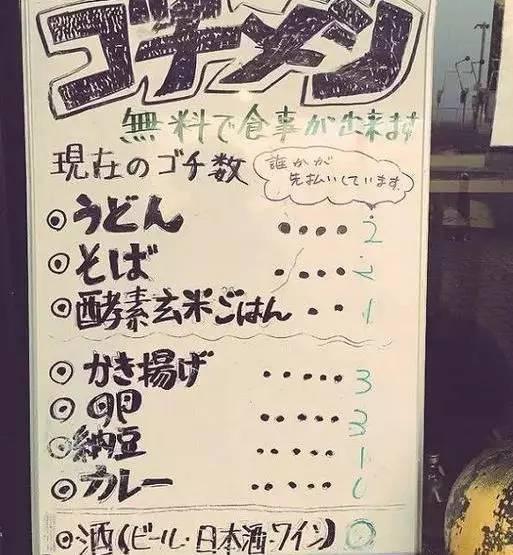 ゴチメン
無料で食事が出来ます
現在のゴチ数
誰かが
先払いしています。
◎うどん ・・・・ 2
◎そば ・・・・
◎酵素玄米ごはん ・・ 1
◎かき揚げ ・・・・・ 3
◎卵 ・・・・・
◎納豆 ・・・・・ 1
◎カレー ・・・・・ 0
◎酒(ビール・日本酒・ワイン)